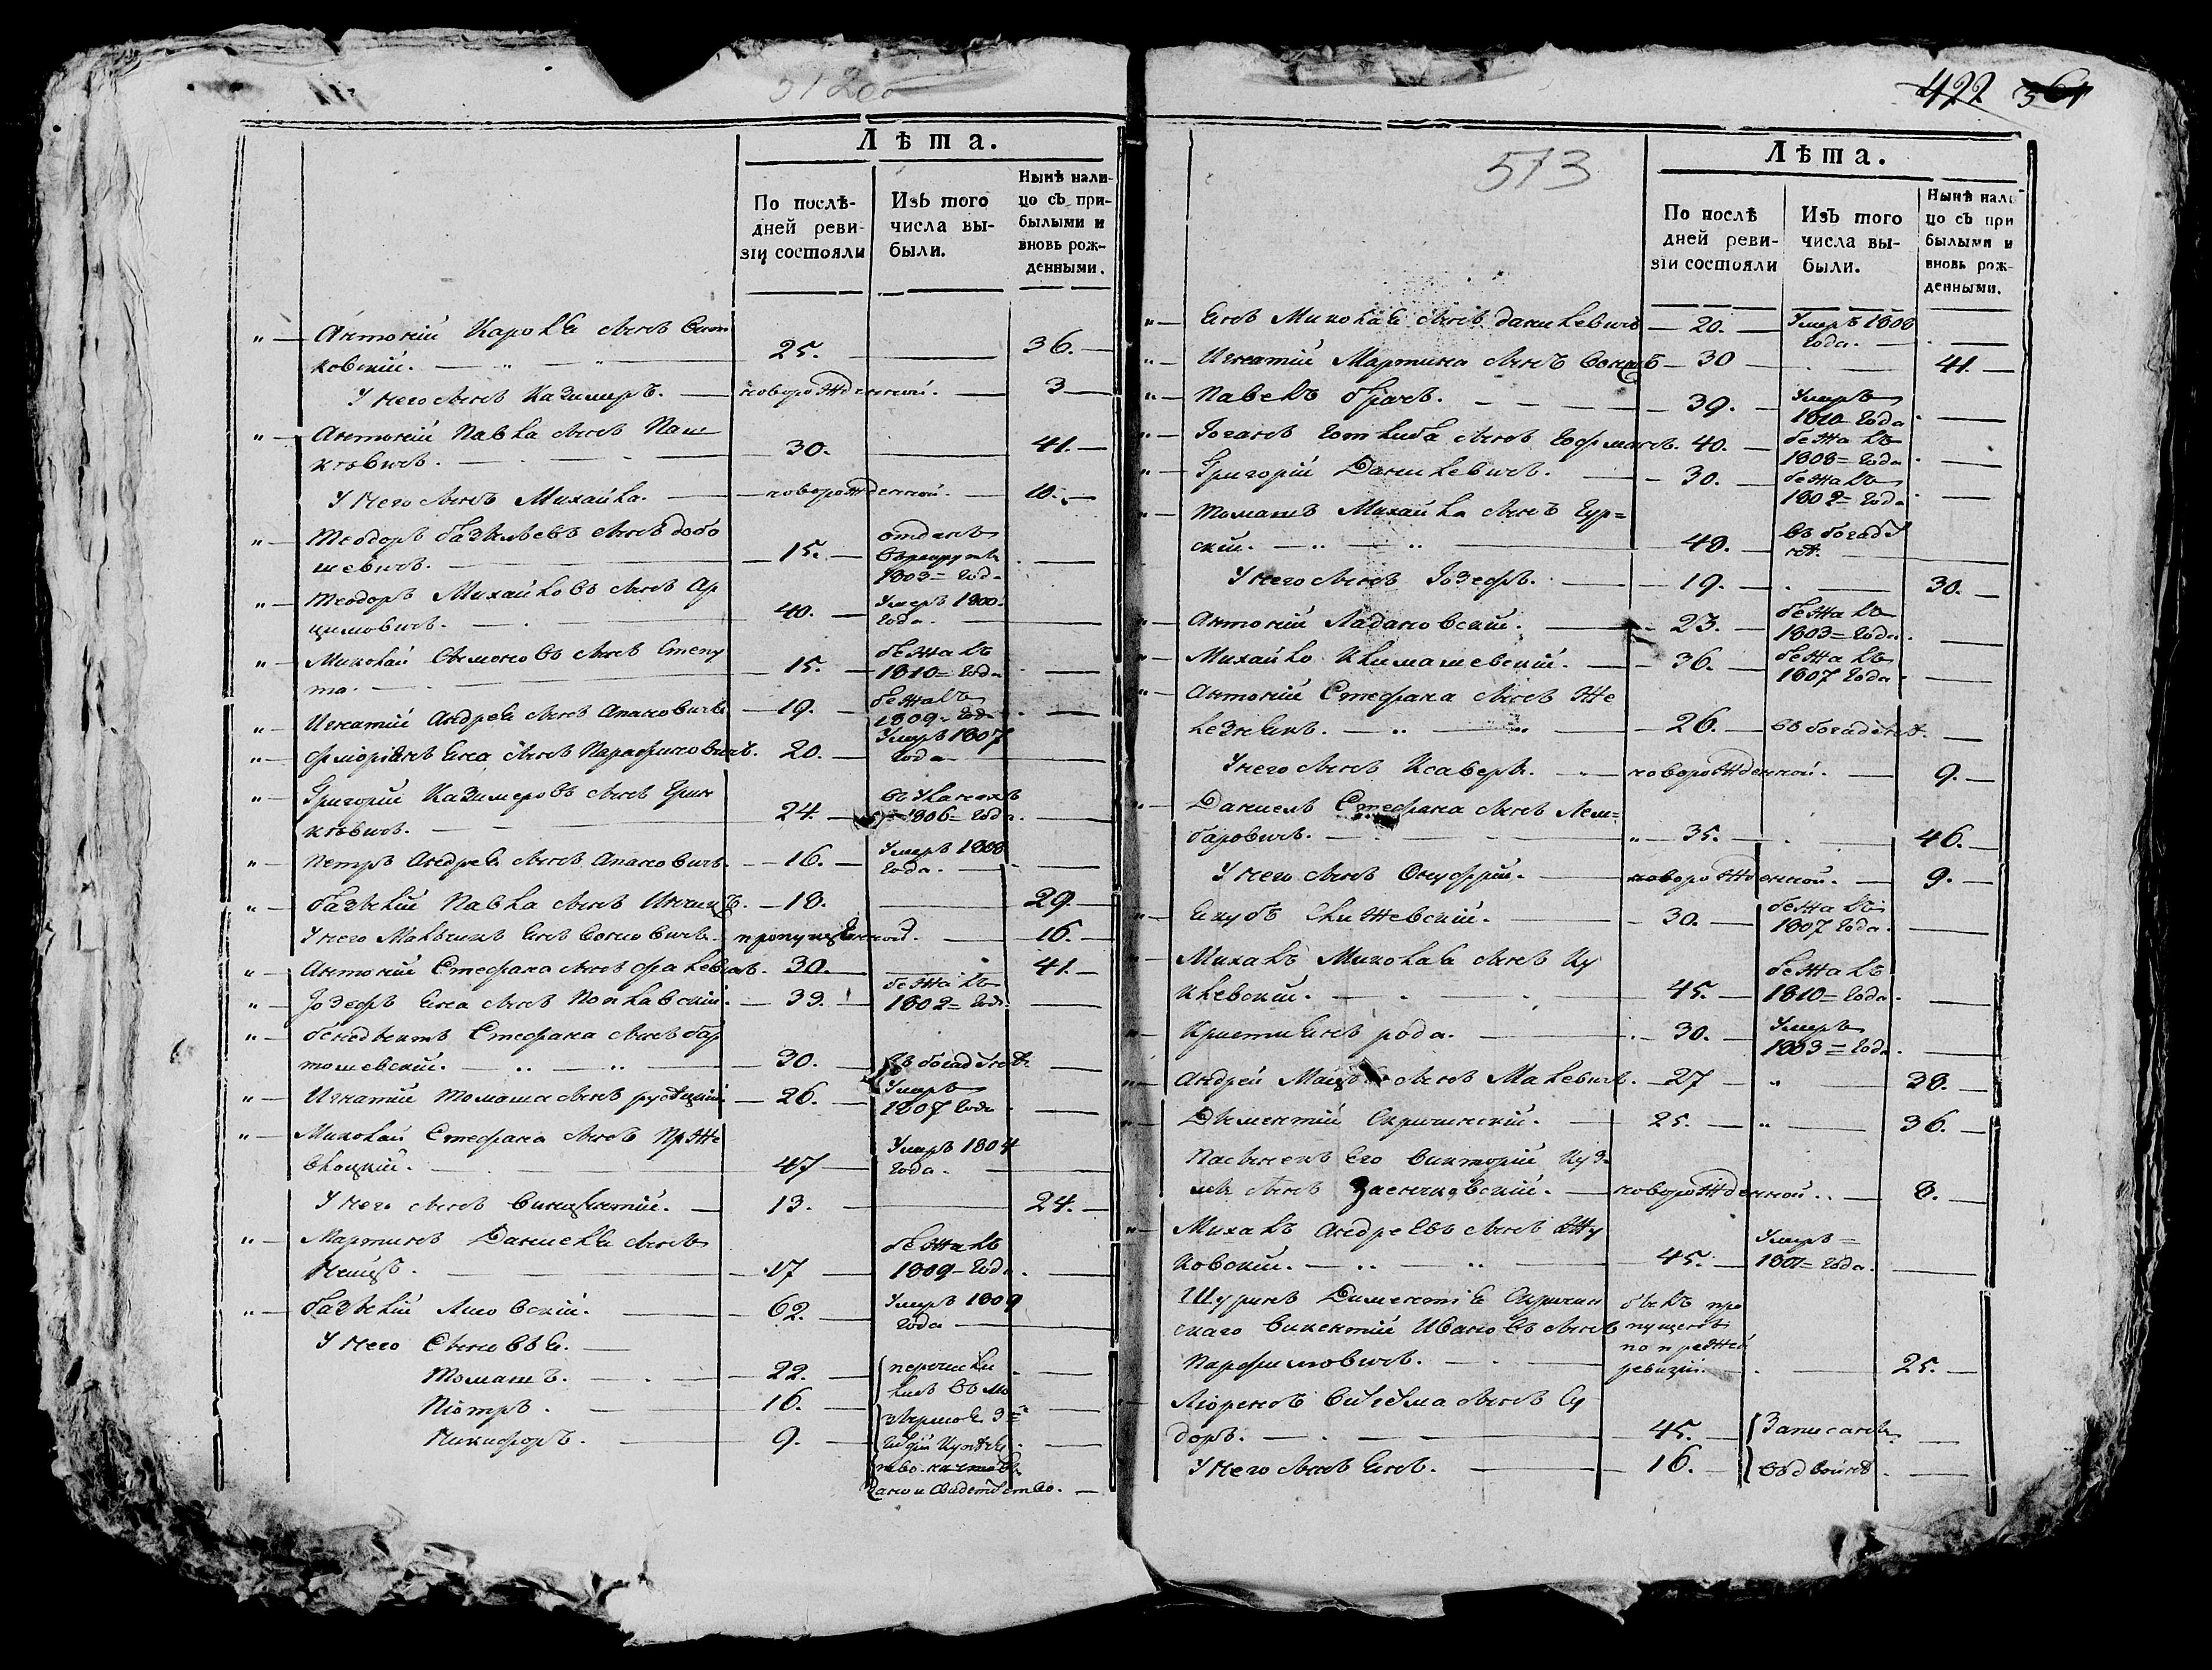 512об
Лѣта.
По послѣ-
дней реви-
зіи состояли
Изъ того
числа вы-
были.
Нынѣ нали-
цо съ при-
былыми и
вновь рож-
денными.
Антоній Кароля сынъ
ковскій. 25. 36.
У него сынъ Казимеръ. новорожденной. 3
Антоній Павла сынъ Паш
кѣвичъ. 30. 41.
У него сынъ Михайла. новорожденной. 10.
Теодоръ Базыльевъ сынъ Добо
шевичъ. 15. отданъ
въ рекруты
1803 = года
Теодоръ Михайловъ сынъ Ар
цимовичъ. 40. Умеръ 1800.
года.
Миколай Сымоновъ сынъ Степу
та. 15. бежалъ
1810 = года
Игнатій Андрея сынъ Апановичъ 19. бежалъ
1809 = года
Флоріянъ Яна сынъ Парафиновичъ. 20. Умеръ 1807
года
Григорій Казимеровъ сынъ Грин
кѣвичъ. 24. въ уланахъ
1806 = года.
Петръ Андрея сынъ Апановичъ. 16. Умеръ 1808
года.
Базылій Павла сынъ 18. 29.
У него Янъ пропущенной. 16.
Антоній Стефана сынъ Фалевичъ. 30. 41.
Іозефъ Яна сынъ Поплавскій. 33. бежалъ
1802 = года.
Бенедыктъ Стефана сынъ Бар
тошевскій. 30. въ богадѣлнѣ
Игнатій Томаша сынъ Рудзкій. 26. Умеръ
1807 года
Миколай Стефана сынъ Прже
влоцкій. 47 Умеръ 1804
года.
У него сынъ Винцентій. 13. 24.
Мартинъ Даниеля сынъ
Немцъ. 17 бежалъ
1809 = года.
Базылій Лисовскій. 62. Умеръ 1809
года
У него Сыновья.
Томашъ. 22. перечисли
Піотръ. 16.
Никифоръ. 9.
422 561
513
Лѣта.
По послѣ
дней реви-
зіи состояли
Изъ того
числа вы-
были.
Нынѣ нали
цо съ при
былыми и
вновь рож-
денными.
Янъ Миколая сынъ Данилевичъ 20. Умеръ 1808
года.
Игнатій Мартина сынъ 30 41.
Павелъ братъ. 39. Умеръ
1810 года
Іоганъ Готлиба сынъ Гофманъ. 40. бежалъ
1808 = года
Григорій Данилевичъ. 30. бежалъ
1802 = года
Томашъ Михайла сынъ Гур=
скій. 48. въ богадѣ
лнѣ.
У него сынъ Іозефъ. 19. 30.
Антоній Ладановскій. 23. бежалъ
1803 = года.
Михайло Климашевскій. 36. бежалъ
1807 года
Антоній Стефана сынъ Же
лезнякъ. 26. въ богадѣлнѣ.
У него сынъ Ксаверъ. новорожденной. 9.
Даниелъ Стефана сынъ Лем=
баровичъ. 35. 46.
У него сынъ Онуфрій. новорожденной. 9.
Якубъ Склижевскій. 30. бежалъ
1807 года.
Михалъ Миколая сынъ Ку
клевскій. 45. бежалъ
1810 = года.
Кристиянъ рода. 30. Умеръ
1803 = года.
Андрей сынъ Малевичъ. 27 38.
Дыментій Скричинскій. 25. 36.
Пасынокъ его Викторій Куз
мы сынъ новорожденной. 8.
Михалъ Андреевъ сынъ Жу
ковскій. 45. Умеръ =
1801 = года.
Шуринъ Диментія Скричин
скаго Викентій Ивановъ сынъ
Парфимовичъ. былъ про
пущенъ
по прежней
ревизіи. 25.
Ліоренсъ сынъ Су
доръ. 45. Записанъ
У него сынъ Янъ. 16.